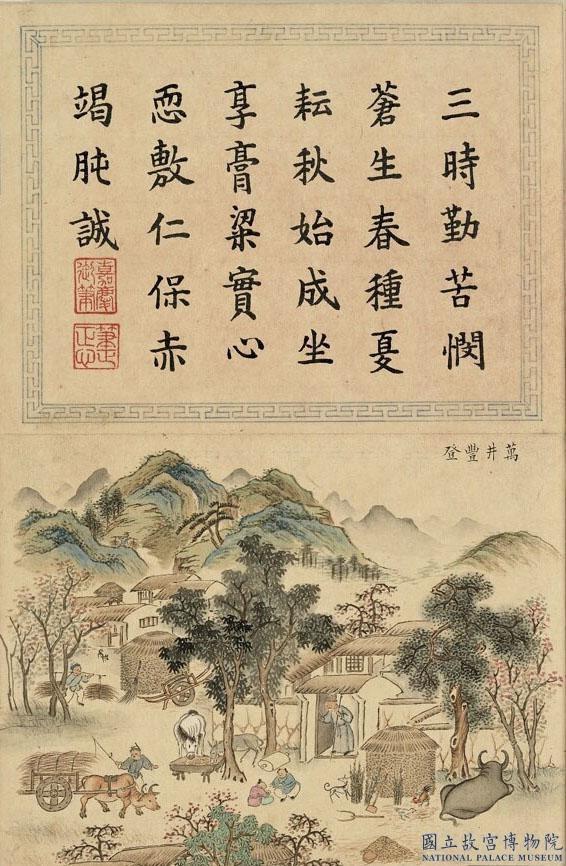 三時勤苦憫
蒼生春種夏
耘秋始成坐
享膏粱實心
恧敷仁保赤
竭肫誠
嘉慶
御筆
萬井豐登
國立故宮博物院
NATIONAL PALACE MUSEUM